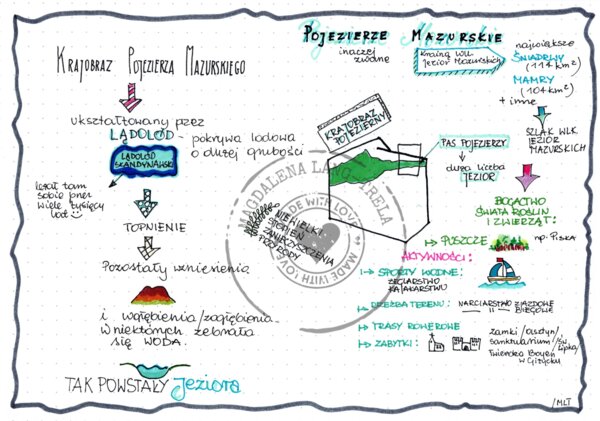 KRAJOBRAZ POJEZIERZA MAZURSKIEGO
ukształtowany przez
LĄDOLÓD - pokrywa lodowa
o dużej grubości
LĄDOLÓD
SKANDYNAWSKI
leżał tam
sobie przez
wiele tysięcy
lat
TOPNIENIE
Pozostały wzniesienia
i wgłębienia/zagłębienia.
W niektórych zebrała
się WODA.
TAK POWSTAŁY jeziora
POJEZIERZE MAZURSKIE
inaczej
zwane
Krainą WLK.
Jezior Mazurskich
największe
ŚNIARDWY
(114 km²)
MAMRY
(104 km²)
+ inne
SZLAK WLK.
JEZIOR
MAZURSKICH
KRAJOBRAZ
POJEZIERNY
PAS POJEZIERZY
duża liczba
JEZIOR
NIEWIELKI
STOPIEŃ
ZANIECZYSZCZENIA
PRZYRODY
BOGACTWO
ŚWIATA ROŚLIN
I ZWIERZĄT:
PUSZCZE np. Piska
AKTYWNOŚCI:
SPORTY WODNE:
ŻEGLARSTWO
KAJAKARSTWO
RZEŹBA TERENU: NARCIARSTWO ZJAZDOWE
—||— BIEGOWE
TRASY ROWEROWE
ZABYTKI:
zamki/Olsztyn/
sanktuarium/Św.
Lipka/
Twierdza Boyen
w Giżycku
/MLT
MADE WITH LOVE
MADE WITH LOVE